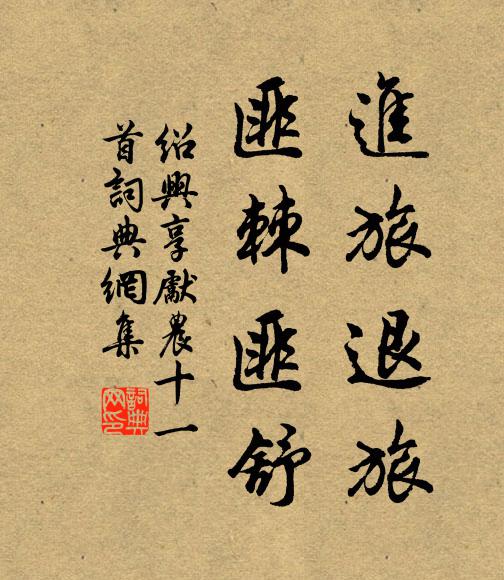 進旅退旅
匪棘匪舒
紹興享獻農十一
首詞典網集
詞典
网印